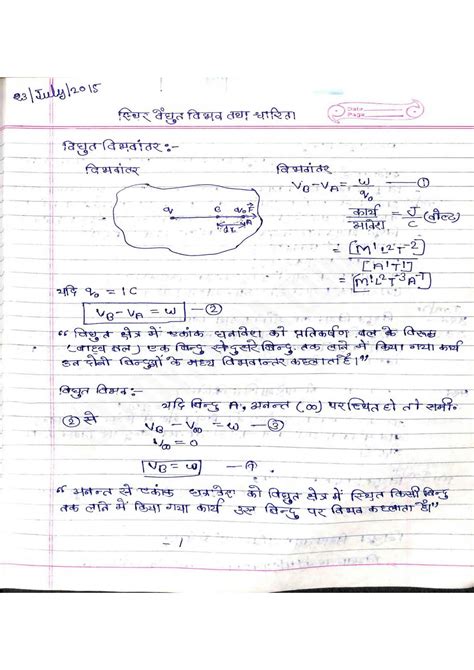 23/July/2015
Date
Page
स्थिर वैद्युत विभव तथा धारिता
विद्युत विभवांतर :-
विभवांतर
विभवांतर
V_B - V_A = ω/q₀ — ①
q B q₀ F
dr A
कार्य/आवेश = J/C (वोल्ट)
= [M¹L²T⁻²]/[A¹T¹]
= [M¹L²T⁻³A⁻¹]
यदि q₀ = 1C
V_B - V_A = ω — ②
“विद्युत क्षेत्र में एकांक धनावेश को प्रतिकर्षण बल के विरूद्ध
(बाह्य बल) एक बिन्दु से दुसरे बिन्दु तक लाने में किया गया कार्य
उन दोनों बिन्दुओं के मध्य विभवान्तर कहलाता है।”
विद्युत विभव :-
यदि बिन्दु A, अनन्त (∞) पर स्थित हो तो समी.
② से
V_B - V_∞ = ω — ③
V_∞ = 0
V_B = ω — ④
“अनन्त से एकांक धनावेश को विद्युत क्षेत्र में स्थित किसी बिन्दु
तक लाने में किया गया कार्य उस बिन्दु पर विभव कहलाता है।”
- 1